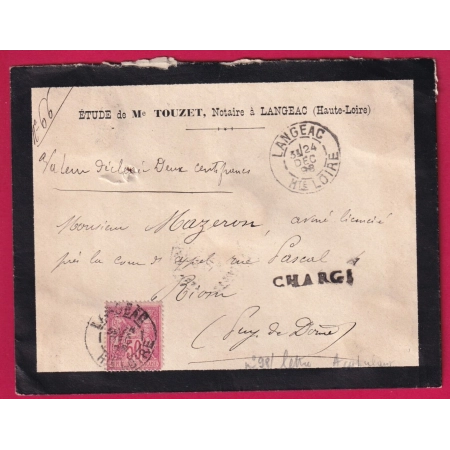 N° 66
ÉTUDE de Me TOUZET, Notaire à LANGEAC (Haute-Loire)
LANGEAC
24
DEC
98
Hte LOIRE
Valeur déclarée Deux cents francs
Monsieur Mazeron, avoué licencié
près la cour d'appel rue Pascal
CHARGÉ
Riom
(Puy-de-Dôme)
LANGEAC
Hte LOIRE
50